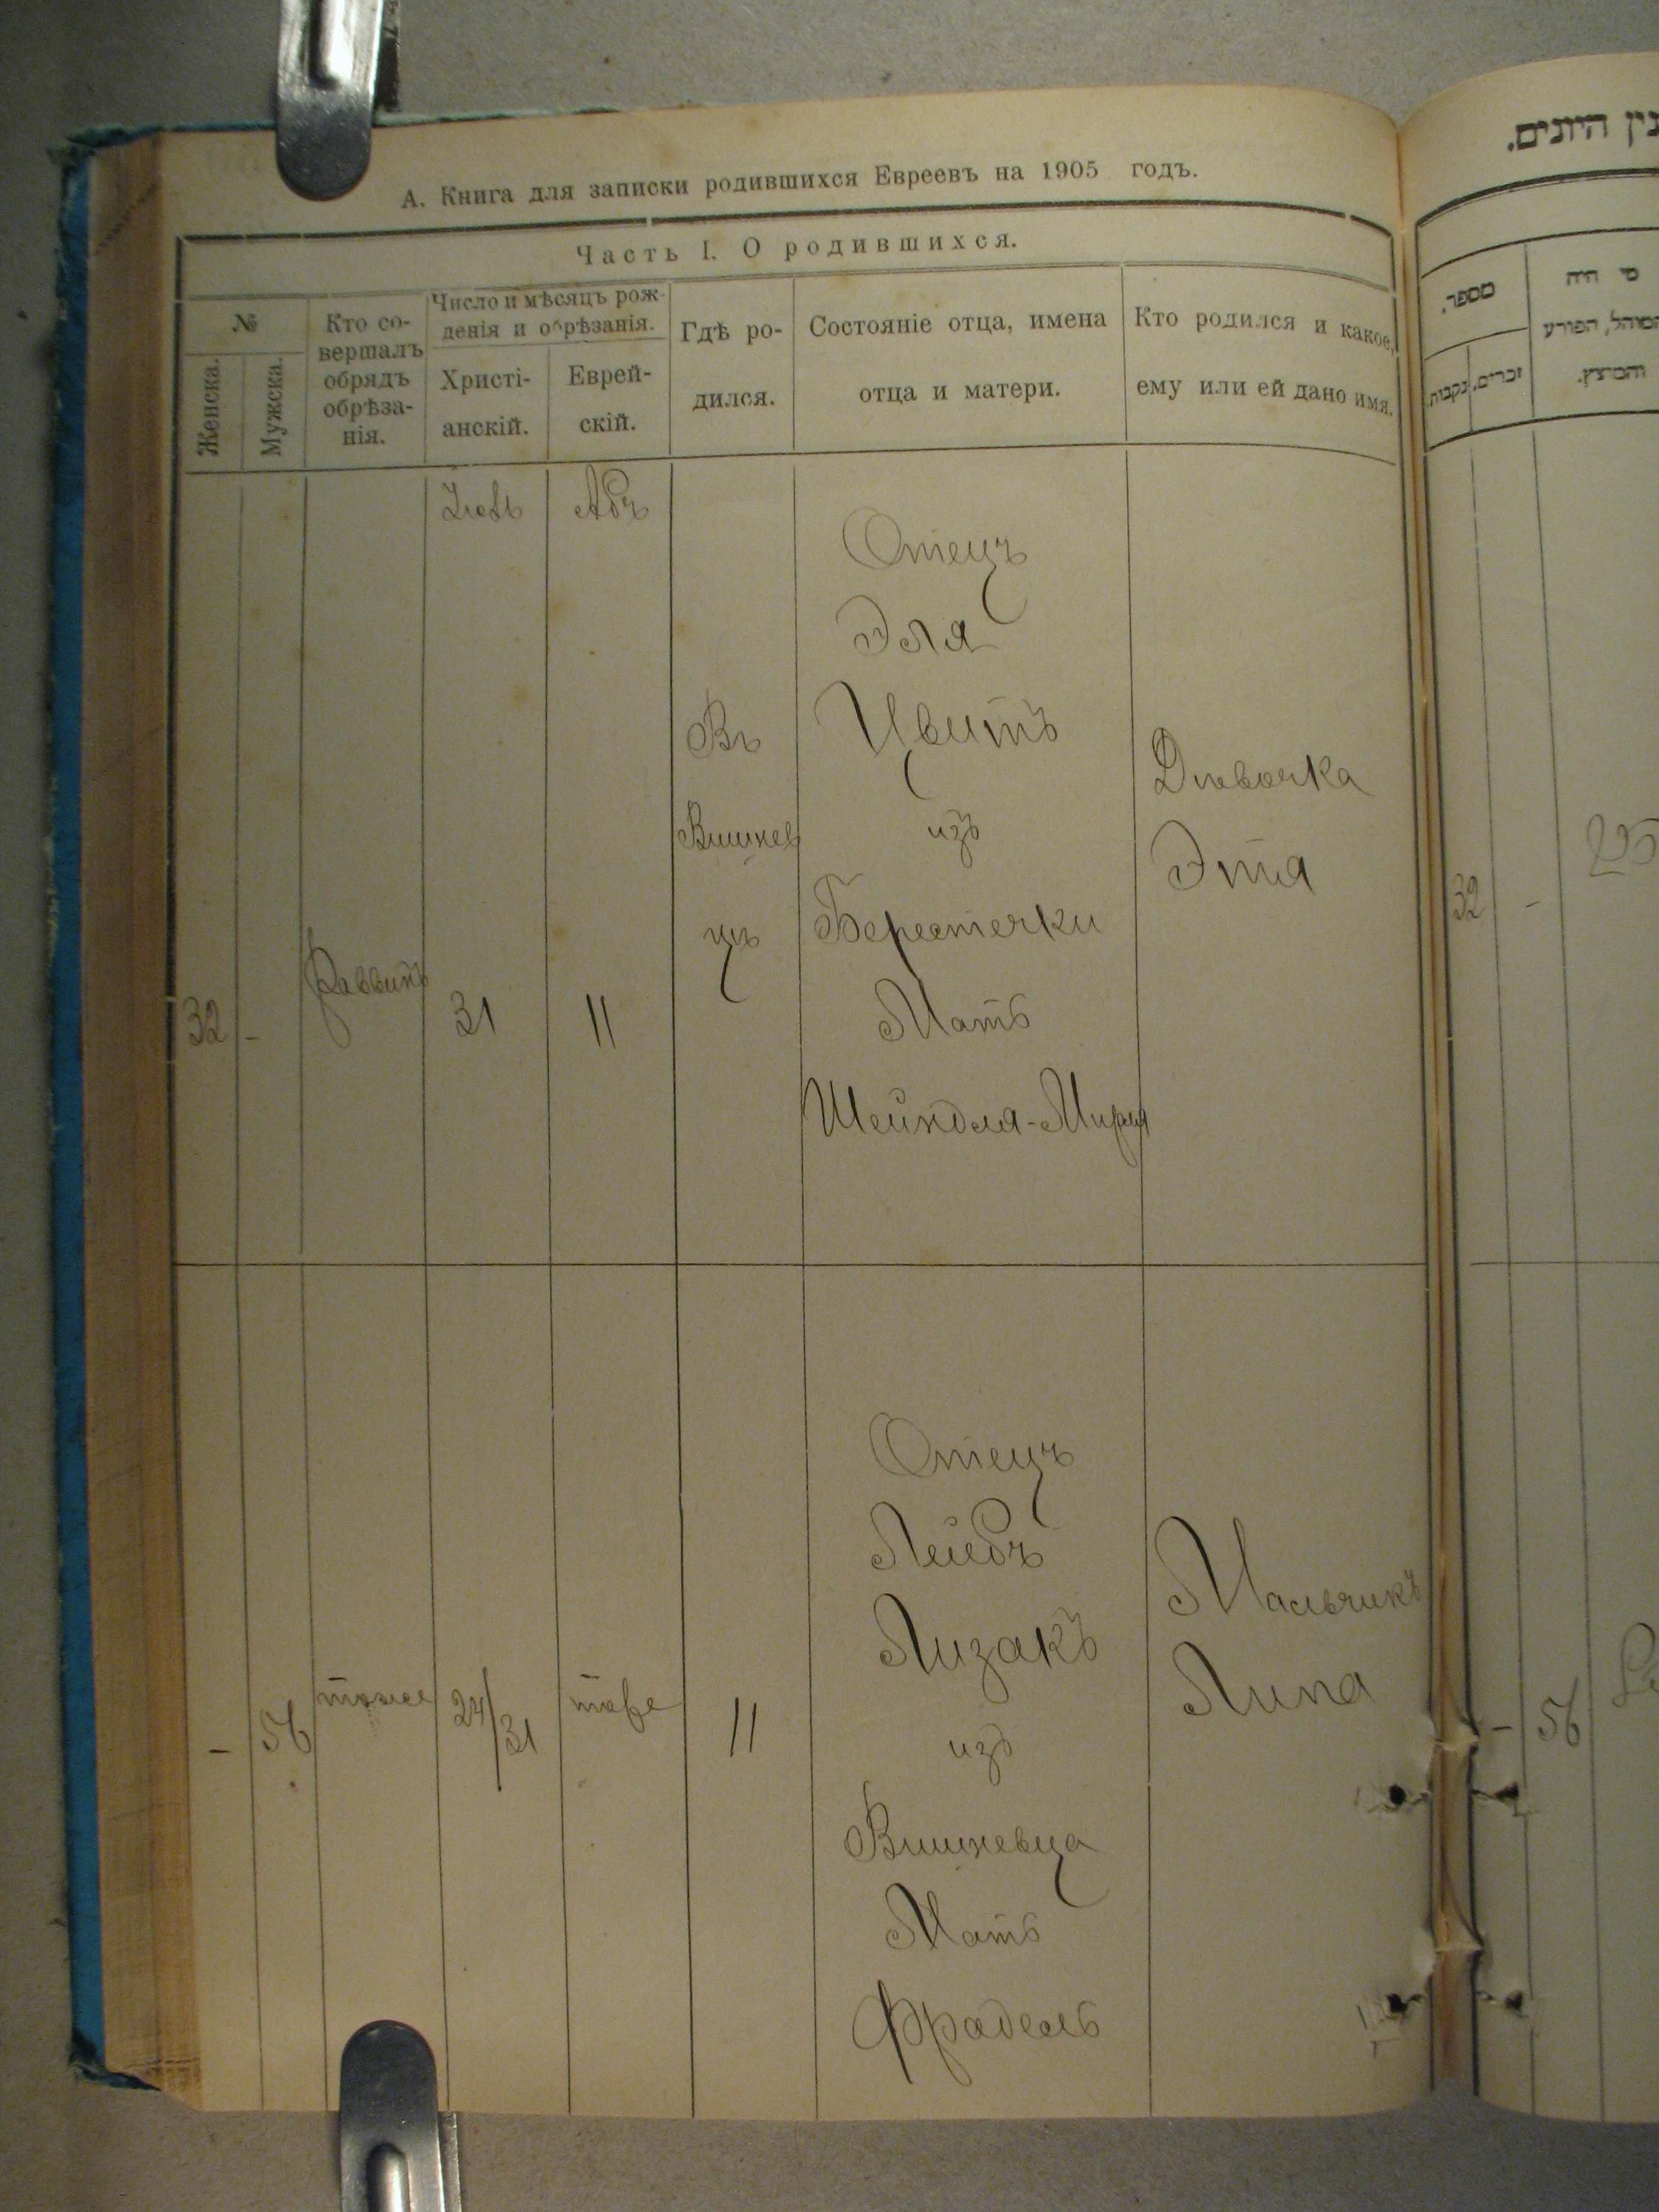 А. Книга для записки родившихся Евреевъ на 1905 годъ.
Часть I. О родившихся.
№
Женска.
Мужска.
Кто со-
вершалъ
обрядъ
обрѣза-
нія.
Число и мѣсяцъ рож-
денія и обрѣзанія.
Христі-
анскій.
Еврей-
скій.
Гдѣ ро-
дился.
Состояніе отца, имена
отца и матери.
Кто родился и какое,
ему или ей дано имя.
32
-
Раввинъ
31
11
Въ
Вишнев
цѣ
Отецъ
Эля
Цвитъ
изъ
Берестечки
Мать
Шейндля-Мирля
Дѣвочка
Этя
-
56
тоже
24/31
тоже
11
Отецъ
Лейбъ
Лизакъ
изъ
Вишневца
Мать
Фрадель
Мальчикъ
Липа
היונים.
מספר.
זכרים.
נקבות.
מי היה
המוהל, הפורע
והמוצץ.
32
-
-
56